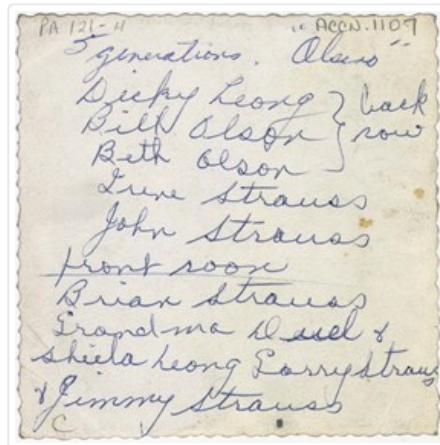 PA 121-H "ACCN. 1109
5 generations. Olsens"
Dicky Leong } back
Bill Olson } row
Beth Olson
Irene Strauss
John Strauss
front room
Brian Strauss
Grandma &
Shiela Leong Garry Strauss
& Jimmy Strauss
C